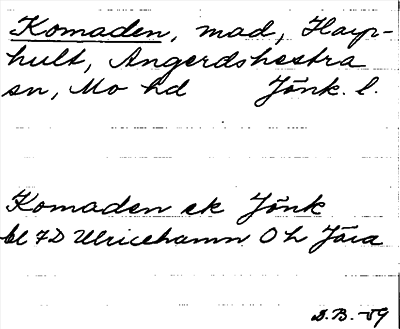 Komaden, mad, Hap-
hult, Angerdshestra
sn, Mo hd Jönk. l.
Komaden ek Jönk
bl 7D Ulricehamn O h Jära
S.B.-59